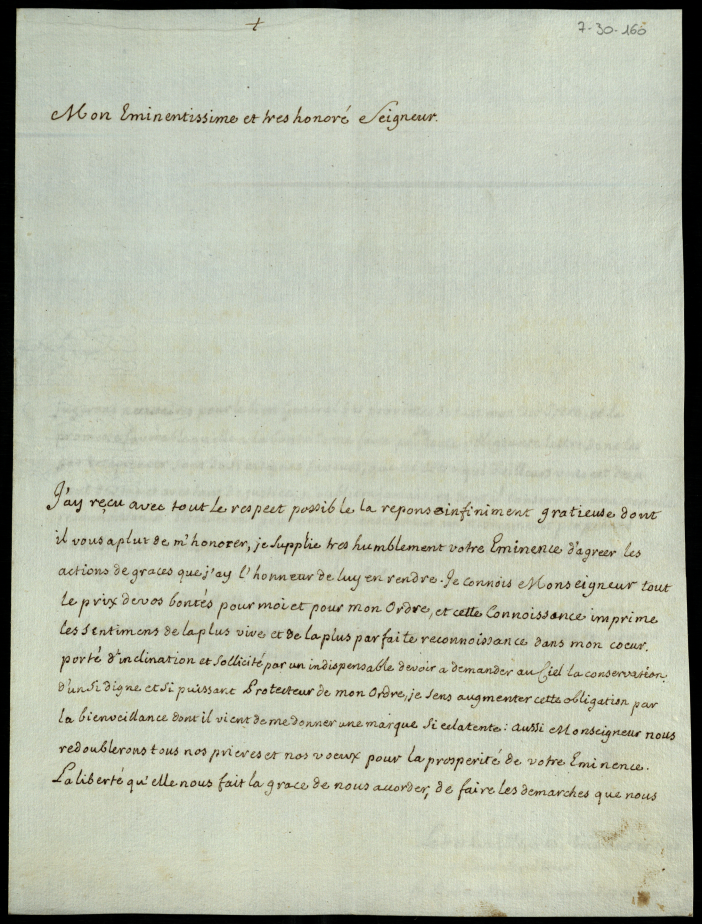 +
7-30-160
Mon Eminentissime et tres honoré Seigneur.
J'ay reçu avec tout le respect possible la reponse infiniment gratieuse dont
il vous a plut de m'honorer, je supplie tres humblement votre Eminence d'agreer les
actions de graces que j'ay l'honneur de luy en rendre. Je connois Monseigneur tout
le prix de vos bontés pour moi et pour mon Ordre, et cette Connoissance imprime
les sentimens de la plus vive et de la plus parfaite reconnoissance dans mon coeur.
porté d'inclination et sollicité par un indispensable devoir a demander au Ciel la conservation
d'un si digne et si puissant Protecteur de mon Ordre, je sens augmenter cette obligation par
la bienveillance dont il vient de me donner une marque si eclatente: aussi Monseigneur nous
redoublerons tous nos prieres et nos voeux pour la prosperité de votre Eminence.
La liberté qu'elle nous fait la grace de nous accorder, de faire les demarches que nous